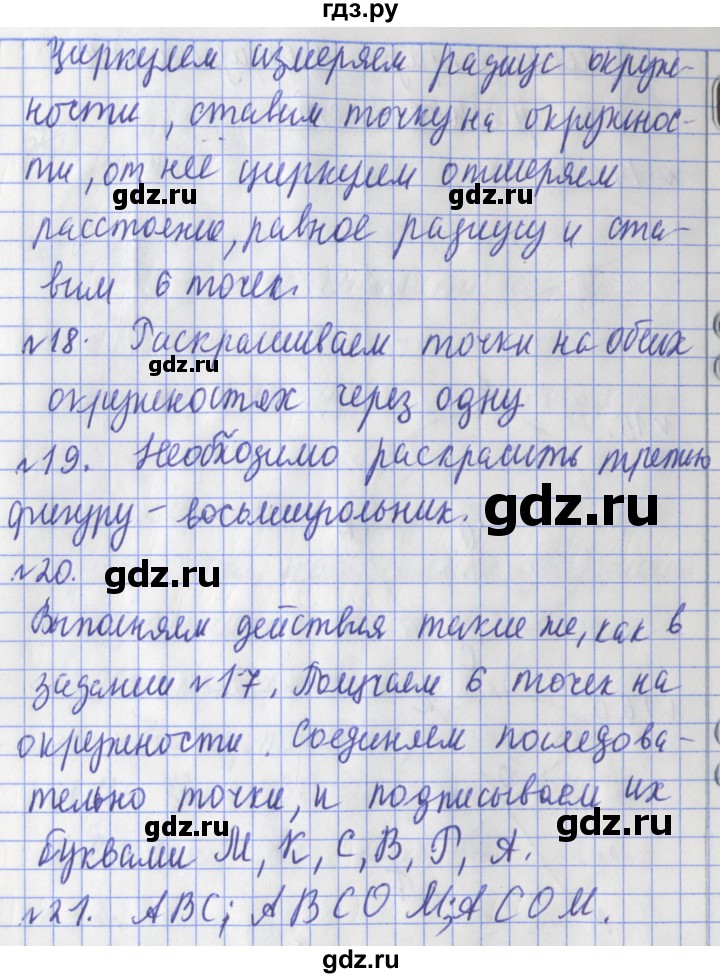 гдз.ру
Циркулем измеряем радиус окруж-
ности, ставим точку на окружнос-
ти, от неё циркулем отмеряем
gdz.ru gdz.ru
расстояние, равное радиусу и ста-
вим 6 точек.
№18. Раскрашиваем точки на обеих
gdz.ru
окружностях через одну
№19. Необходимо раскрасить третью
фигуру - восьмиугольник. gdz.ru
№20. gdz.ru
Выполняем действия такие же, как в
задании №17. Получаем 6 точек на
окружности. Соединяем последова-
тельно точки, и подписываем их
gdz.ru gdz.ru
буквами М, К, С, В, Г, А.
№21. АВС; АВСО М; АСОМ.
gdz.ru gdz.ru